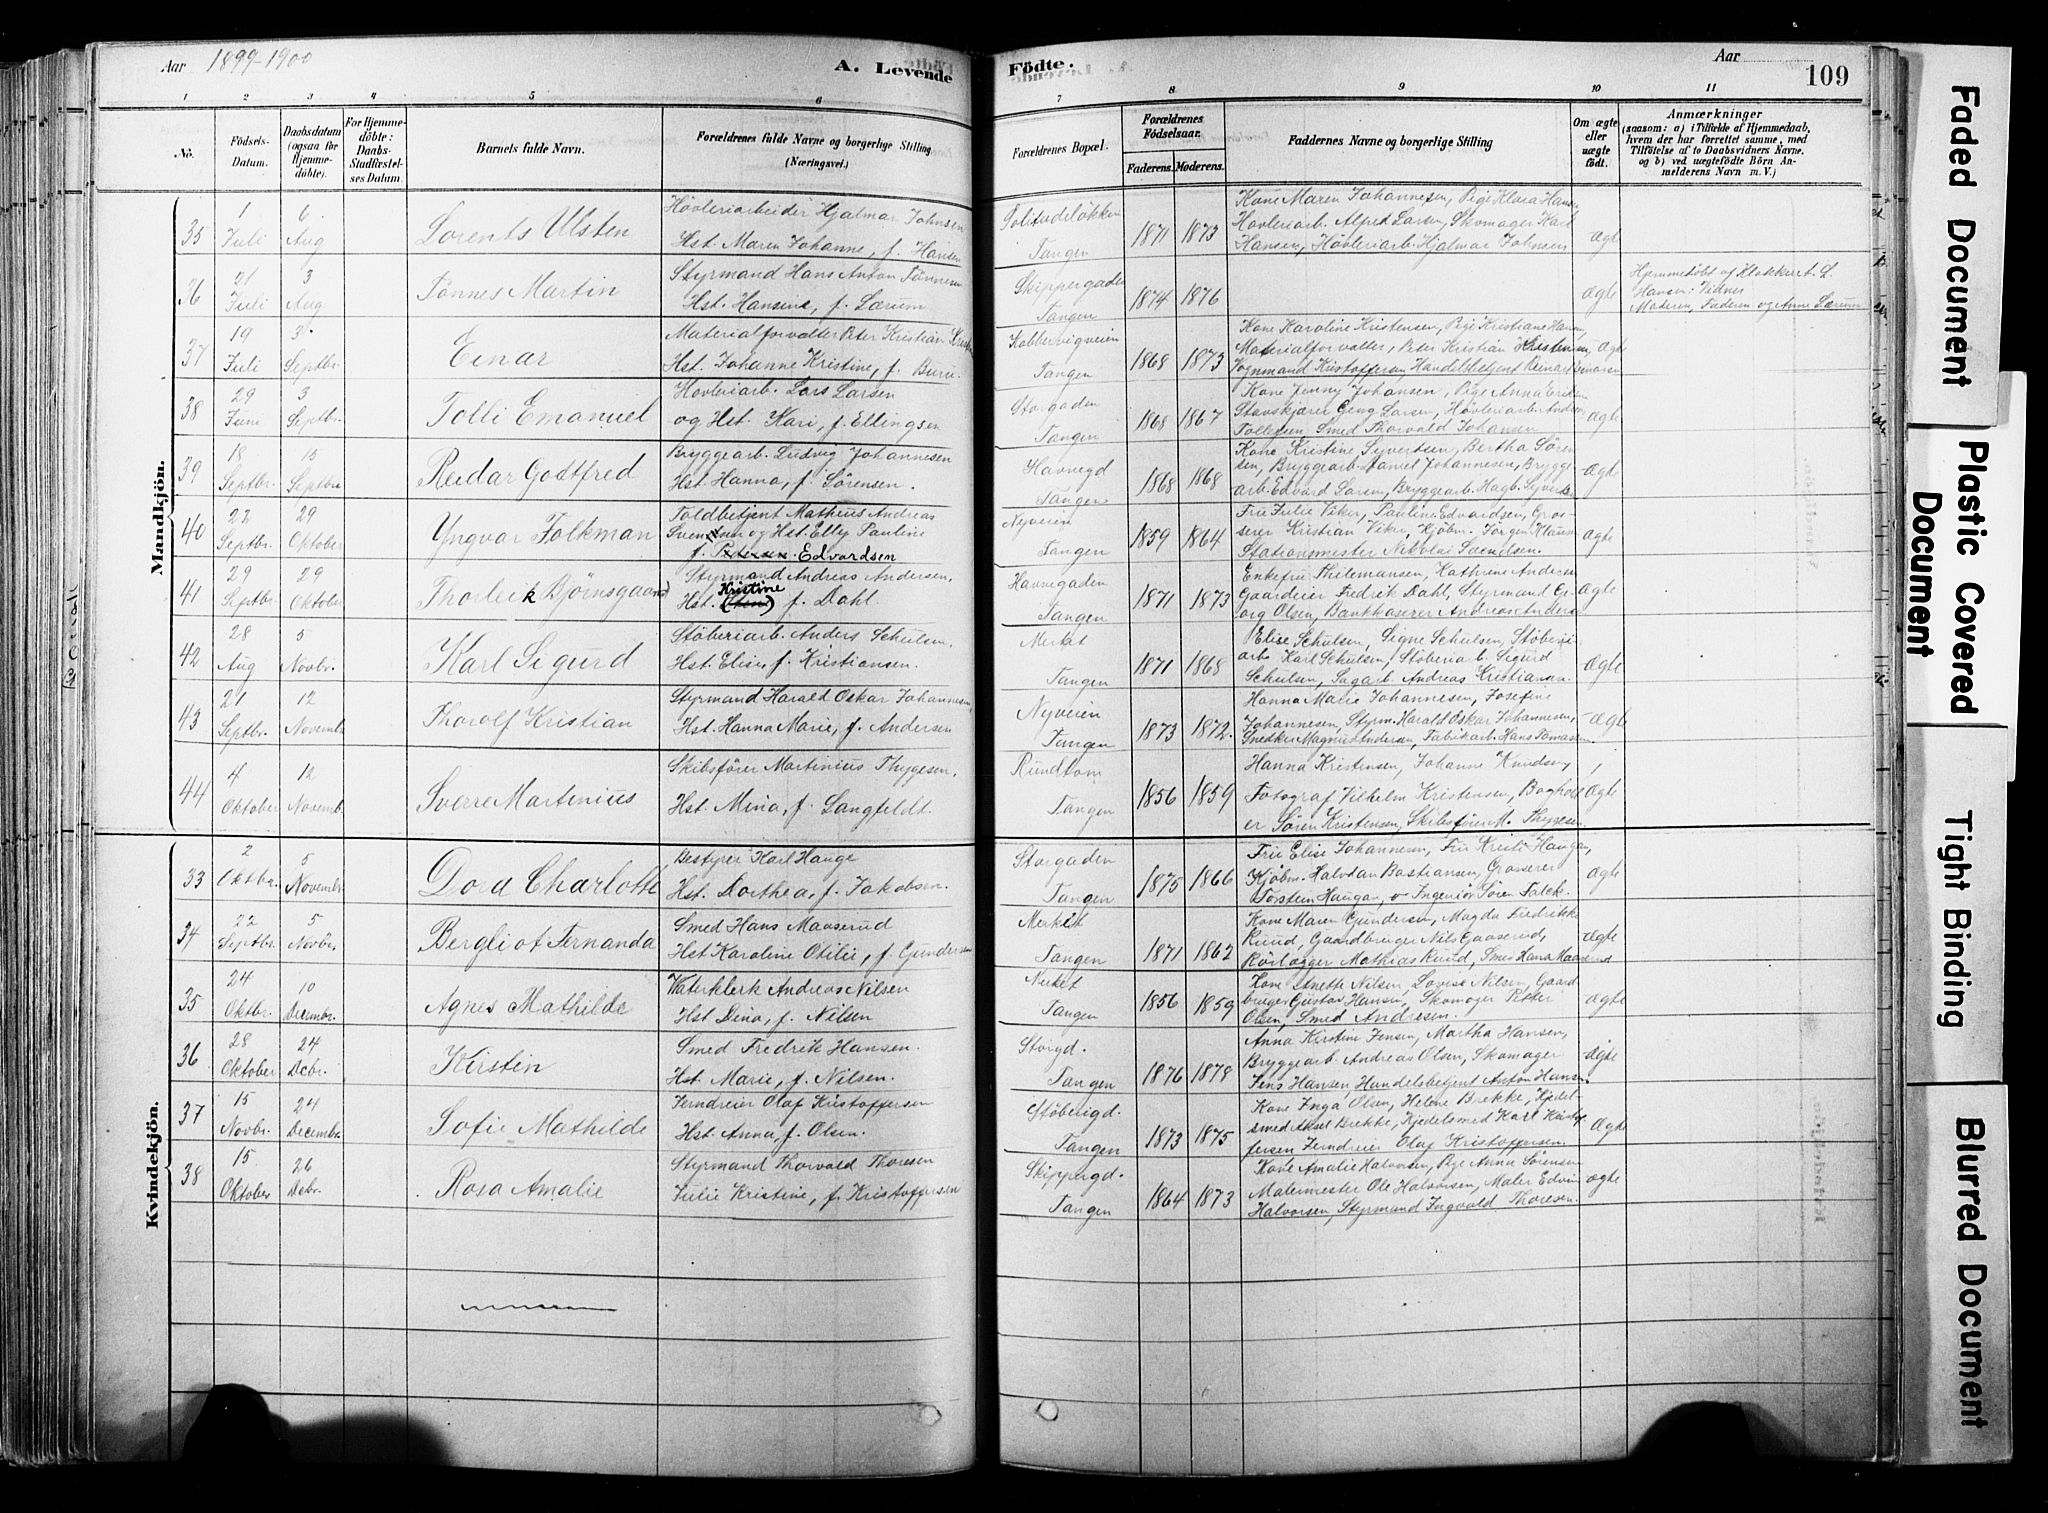 Aar 1899-1900
A. Levende
Födte.
Aar
109
1 2 3 4 5 6 7 8 9 10 11
No.
Födsels-Datum.
Daabsdatum (ogsaa för Hjemmedöbte).
For Hjemmedöbte: Daabs-Stadfæstelses Datum.
Barnets fulde Navn.
Forældrenes fulde Navne og borgerlige Stilling (Næringsvei.)
Forældrenes Bopæl.
Forældrenes Födselsaar.
Faderens. Moderens.
Faddernes Navne og borgerlige Stilling
Om ægte eller uægte födt.
Anmærkninger
(saasom: a) i Tilfælde af Hjemmedaab, hvem der har forrettet samme, med Tilföielse af to Daabsvidners Navne, og b) ved uægtefödte Börn Anmelderens Navn m. V.)
Mandkjön.
35 1 Juli 6 Aug Lorents Ulsten
Høvleriarbeider Hjalmar Johnsen
Hst. Maren Johanne, f. Hansen
Solitudeløkken Tangen 1871 1873
Kone Maren Johannesen, Pige Klara Hansen
Høvleriarb. Alfred Larsen, Skomager Karl
Hansen, Høvleriarb. Hjalmar Johnsen
Ægte
36 21 Juli 3 Aug Tønnes Martin
Styrmand Hans Anton Tønnesen
Hst. Hansine, f. Lærum
Skippergaden Tangen 1874 1876 Ægte
Hjemmedøbt af Klokker A. L.
Hansen: Vidner
Moderen, Faderen og Anne Lærum
37 19 Juli 3 Septbr. Einar
Materialforvalter Peter Kristian
Hst. Johanne Kristine, f. Buru
Kobbervigveien Tangen 1868 1873
Kone Karoline Kristensen, Pige Kristiane Hansen
Materialforvalter, Peter Kristian Kristensen,
Vognmand Kristoffersen Handelsbetjent
Ægte
38 29 Juni 3 Septbr. Tolli Emanuel
Høvleriarb. Lars Larsen
og Hst. Kari, f. Ellingsen
Storgaden Tangen 1868 1867
Kone Jenny Johansen, Pige Anna Eriksen
Stavskjærer Georg Larsen, Høvleriarb. Anders
Tollefsen, Smed Thorvald Johansen
Ægte
39 18 Septbr. 15 Septbr Reidar Godtfred
Bryggearb. Ludvig Johannesen
Hst. Hanna, f. Sørensen.
Havnegd Tangen 1868 1868
Kone Kristine Syvertsen, Bertha Søren-
sen, Bryggearb. Daniel Johannesen, Brygge-
arb. Edvard Larsen, Bryggearb. Hagb. Syverts
Ægte
40 22 Septbr. 29 Oktober Yngvar Folkman
Toldbetjent Matheus Andreas
og Hst. Elly Pauline
f. Petersen. Edvardsen
Nyveien Tangen 1859 1864
Frue Julie Viker, Pauline Edvardsen, Gros-
serer Kristian Viker, Kjøbm. Jørgen Klausen
Stationsmester Nikolai Svendsen.
Ægte
41 29 Septbr. 29 Oktober Thorleik Bjørnsgaard
Styrmand Andreas Andersen,
Hst. Kristine f. Dahl.
Havnegaden Tangen 1871 1873
Enkefru Thilemansen, Kathrine Andersen
Gaardeier Fredrik Dahl, Styrmand Ge-
org Olsen, Bankkaserer Andreas Anders
Ægte
42 28 Aug 5 Novbr. Karl Sigurd
Støberiarb. Anders Schulsen,
Hst. Elise, f. Kristiansen.
Merket Tangen 1871 1868
Elise Schulsen, Signe Schulsen, Støberi-
arb Karl Schulsen, Støberiarb. Sigurd
Schulsen, Sagarb. Andreas Kristiansen.
Ægte
43 21 Septbr. 12 Novembr Thorolf Kristian
Styrmand Harald Oskar Johannesen,
Hst. Hanna Marie, f. Andersen
Nyveien Tangen 1873 1872.
Hanna Marie Johannesen, Josefine
Johannesen, Styrm. Harald Oskar Johannesen,
Snedker Magnus Andersen, Fabrikarb. Hans Tomassen.
Ægte
44 4 Oktober 12 Novemb. Sverre Martinius
Skibsfører Martinius Thygesen.
Hst. Mina, f. Langfeldt.
Rundtom Tangen 1856 1859
Hanna Kristensen, Johanne Knudsen,
Fotograf Vilhelm Kristensen, Boghold
er Søren Kristensen, Skibsfører M. Thygesen.
Ægte
Kvindekjön.
33 2 Oktbr. 5 Novembr Dora Charlotte
Bestyrer Karl Hauge
Hst. Dorthea, f. Jakobsen.
Storgaden Tangen 1875 1866
Frue Elise Johannesen, Frue Kristi Haugan,
Kjøbm. Halvdan Bastiansen, Grosserer
Torstein Haugan, Ingeniør Søren Falck.
Ægte
34 22 Septbr. 5 Novbr. Bergliot Fernanda
Smed Hans Maaserud
Hst Karoline Otilie, f. Gundersen
Merket Tangen 1871 1862
Kone Maren Gundersen, Magda Fredrikke
Ruud, Gaardbruger Nils Gaaserud,
Rørlægger Mathias Ruud, Smed Hans Maaserud
Ægte
35 24 Oktbr. 10 Decembr. Agnes Mathilde
Waterklerk Andreas Nilsen
Hst Dina, f. Nilsen
Tangen 1856 1859
Kone Anette Nilsen, Lovise Nilsen, Gaard-
bruger Gustav Hansen, Skomager Petter
Olsen, Smed Andresen.
Ægte
36 28 Oktober 24 Dcbr. Kirstin
Smed Fredrik Hansen.
Hst. Marie, f. Nilsen.
Storgd. Tangen 1876 1878
Anna Kirstine Jensen, Martha Hansen,
Bryggearb. Andreas Olsen, Skomager
Jens Hansen, Handelsbetjent Anton Hansen.
Ægte
37 15 Novbr. 24 Decembr. Sofie Mathilde
Ferndreier Olaf Kristoffersen
Hst. Anna, f. Olsen.
Støberigd. Tangen 1873 1875
Kone Inga Olsen, Helene Brekke, Kjedel-
smed Aksel Brekke, Kjedelsmed Karl Kristof
fersen Ferndreier Olaf Kristoffersen.
Ægte
38 15 Oktober 26 Dcbr. Rosa Amalie
Styrmand Thorvald Thoresen
Julie Kristine, f. Kristoffersen
Skippergd. Tangen 1864 1873
Kone Amalie Halvorsen, Pige Anna Sørensen
Malermester Ole Halvorsen, Maler Edvin
Halvorsen, Styrmand Ingvald Thoresen.
Ægte
Faded Document
Plastic Covered Document
Tight Binding
Blurred Document